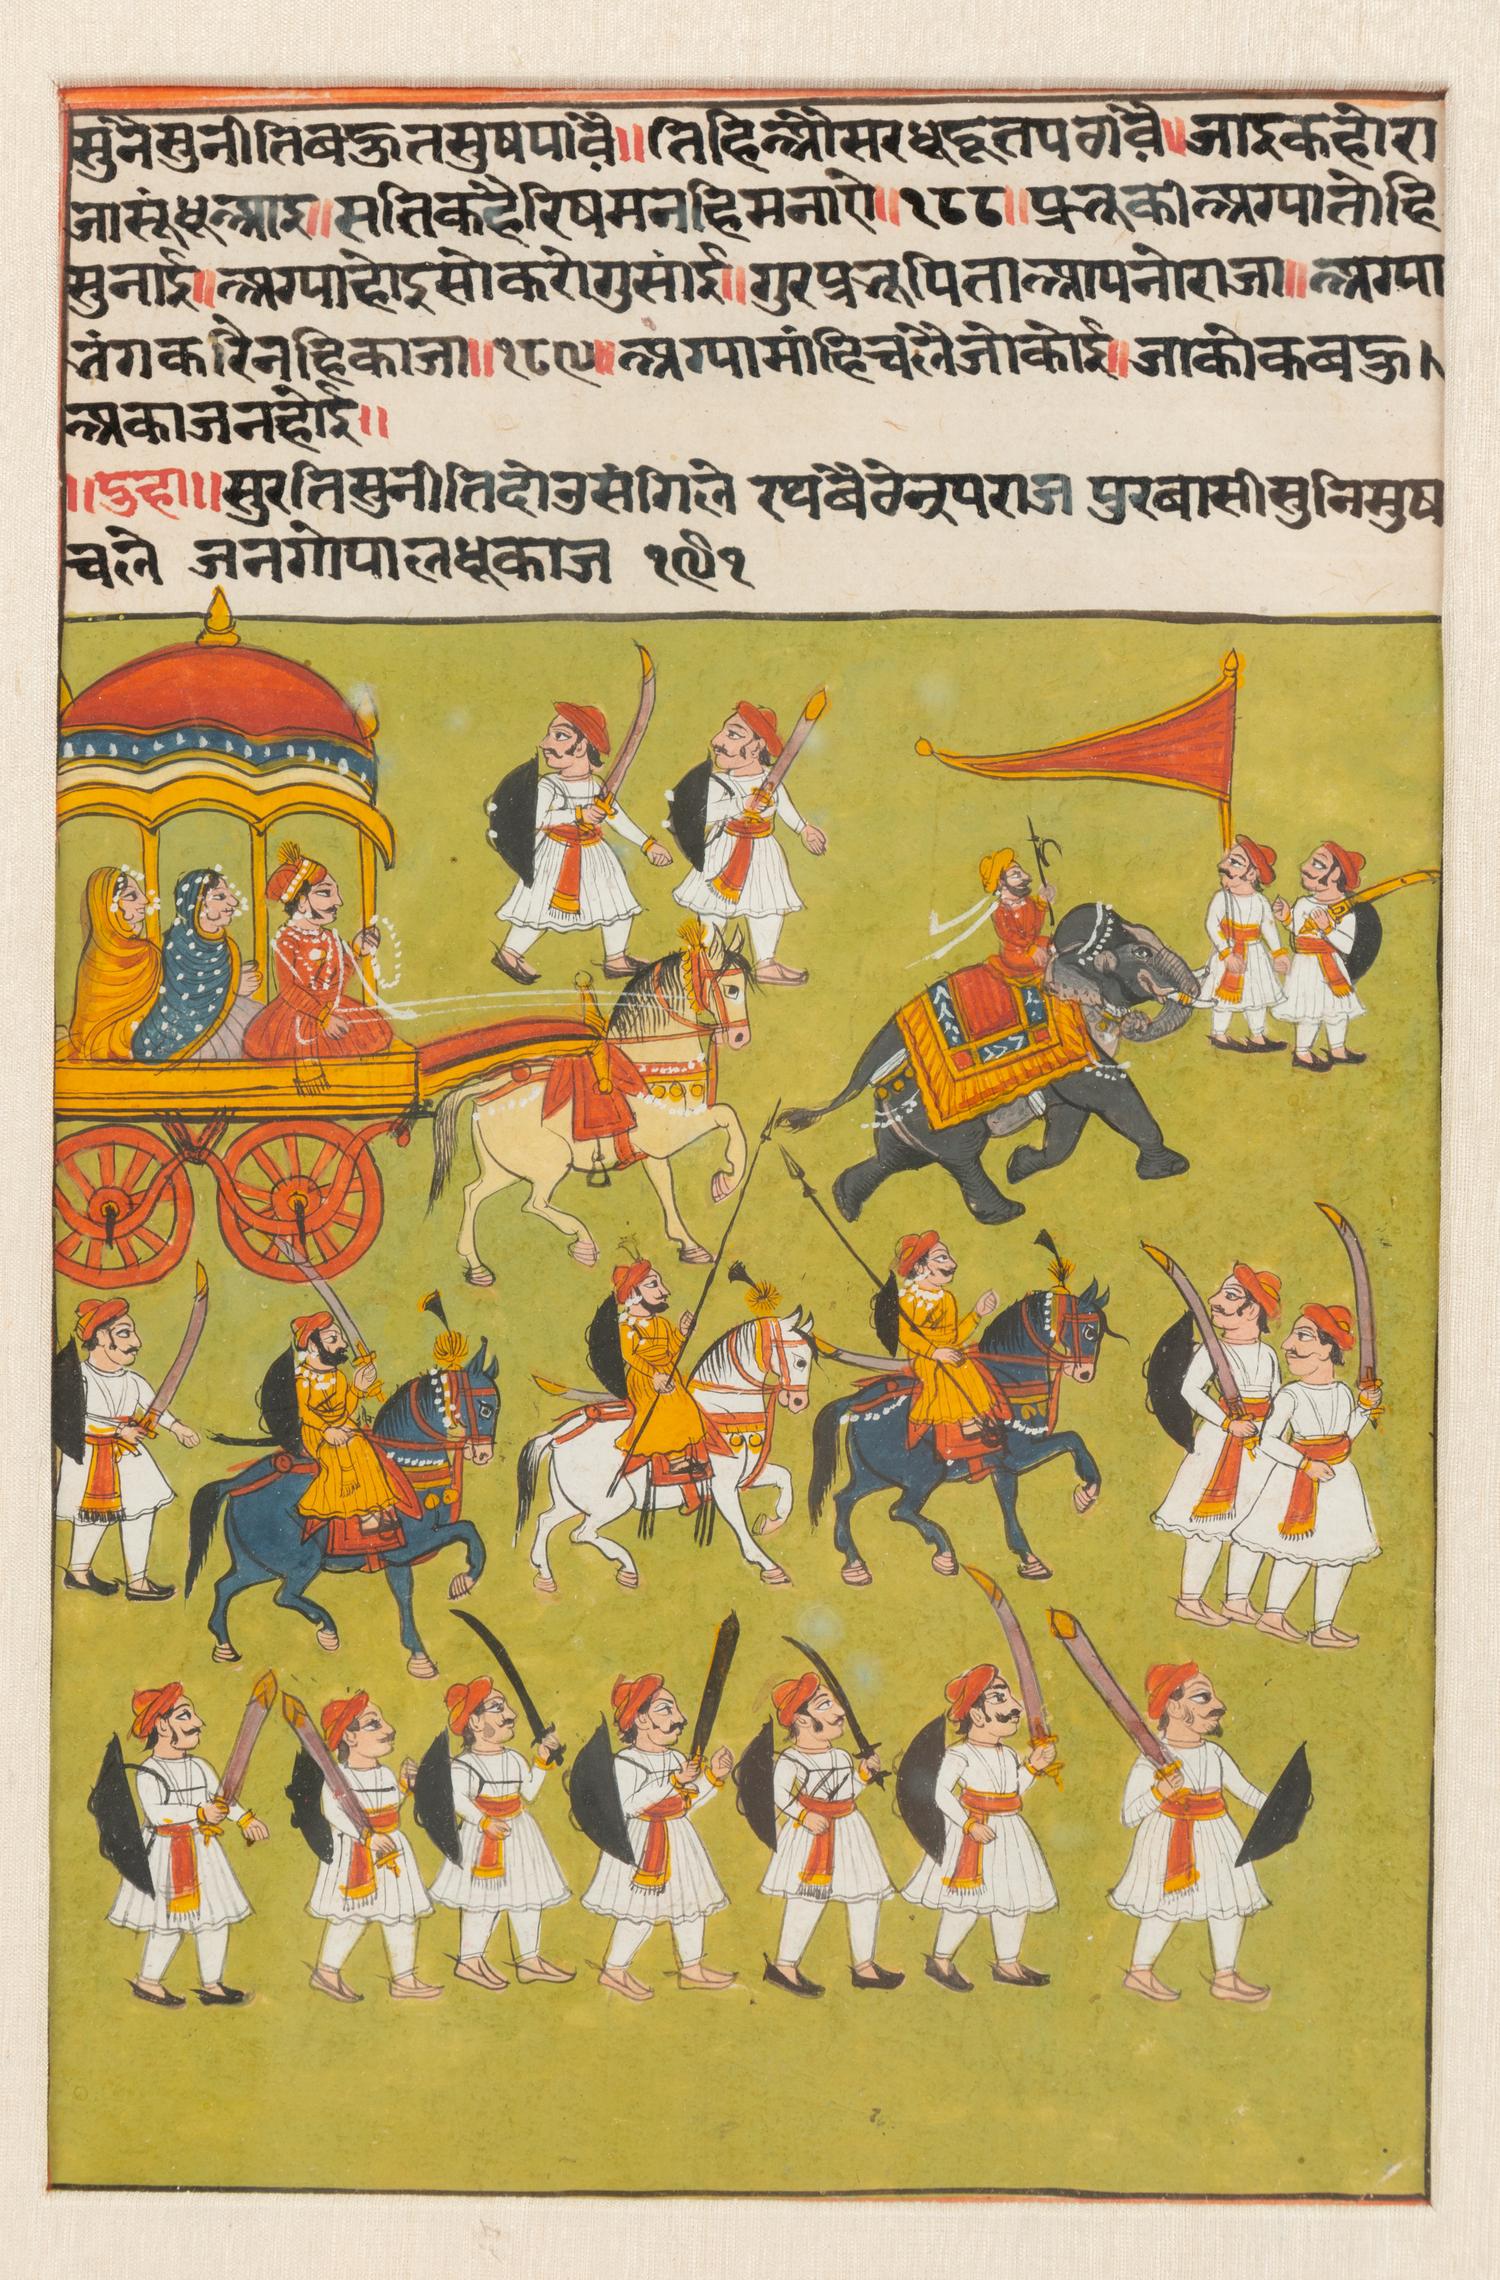 सुनैसुनीतिबहुतसुषपांवै॥तिहिऔसरधूदूतपठांवै॥जाइकहोरा
जासूंधूआइ॥सतिकहैरिषमनहिमनाऐ॥१८८॥प्रभूकीअग्यातोहि
सुनाई॥अग्याहोइसोकरोगुसांई॥गुरप्रभूपिताआपनोराजा॥अग्या
भंगकरैनहिकाजा॥१८९॥अग्यामांहिचलैजोकोई॥जाकोकबहु।
अकाजनहोई॥
॥दुहा॥सुरतिसुनीतिदोउसंगिले रथबैठेनृपराज पुरबासीसुनिमुष
चले जनगोपालधूकाज १९१